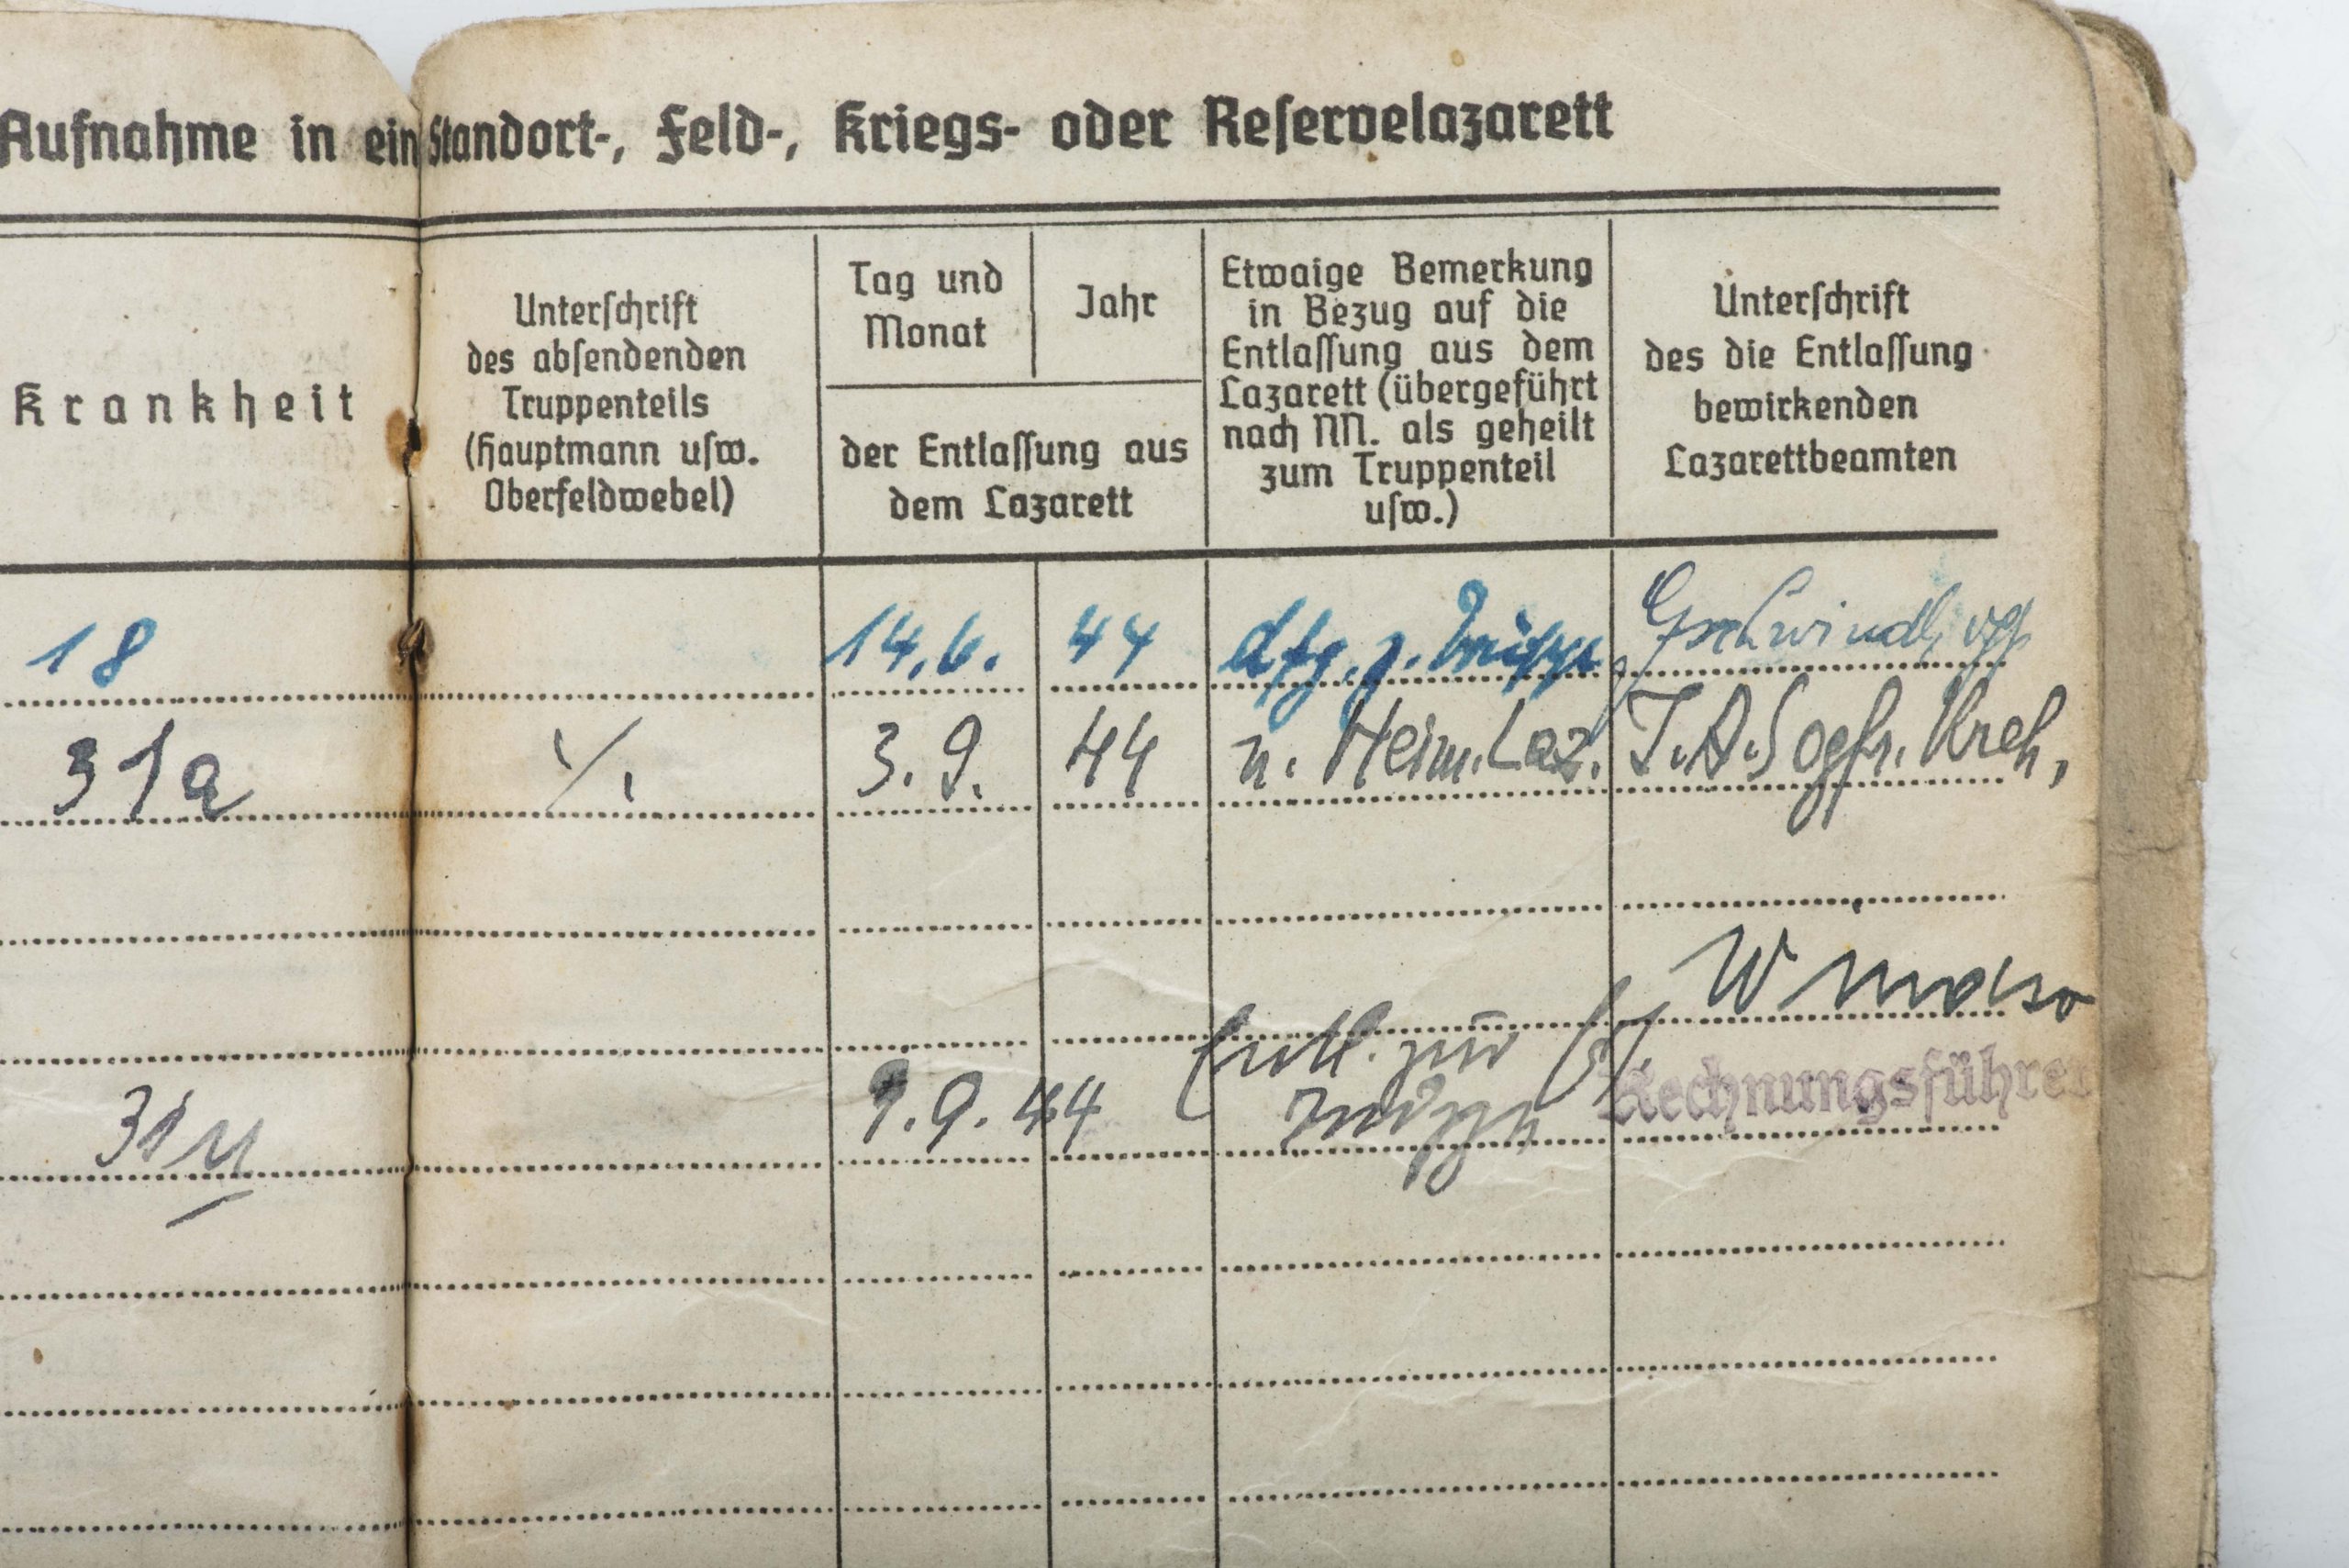 Aufnahme in ein Standort-, Feld-, Kriegs- oder Reservelazarett
Krankheit
Unterschrift
des absendenden
Truppenteils
(Hauptmann usw.
Oberfeldwebel)
Tag und
Monat
Jahr
der Entlassung aus
dem Lazarett
Etwaige Bemerkung
in Bezug auf die
Entlassung aus dem
Lazarett (übergeführt
nach NN. als geheilt
zum Truppenteil
usw.)
Unterschrift
des die Entlassung
bewirkenden
Lazarettbeamten
18 14.6. 44 dfg. z. Truppe
31a ./. 3.9. 44 n. Heim. Laz. I.A. Ogfr.
Entl. zur
31 9.9.44 Truppe Rechnungsführer